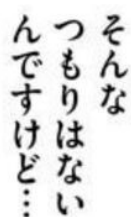 そんな
つもりはない
んですけど…